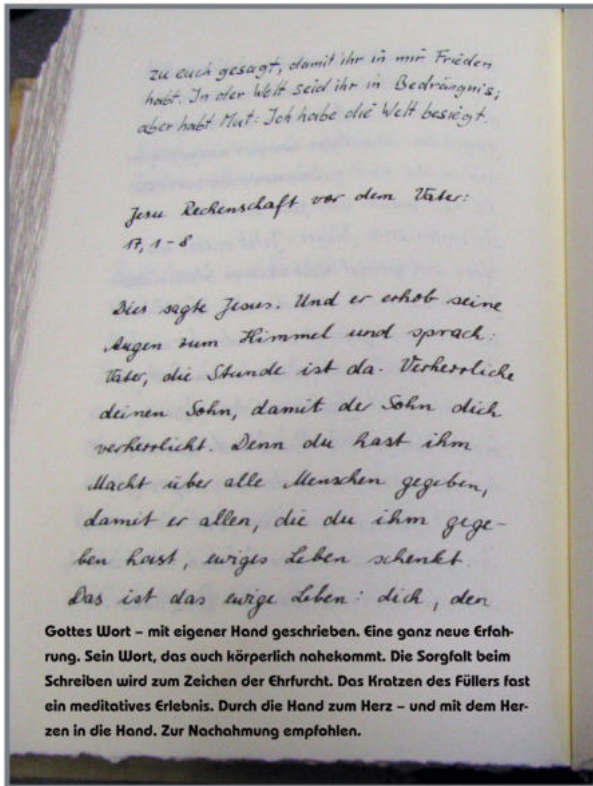 zu euch gesagt, damit ihr in mir Frieden
habt. In der Welt seid ihr in Bedrängnis;
aber habt Mut: Ich habe die Welt besiegt.
Jesu Rechenschaft vor dem Vater:
17, 1-8
Dies sagte Jesus. Und er erhob seine
Augen zum Himmel und sprach:
Vater, die Stunde ist da. Verherrliche
deinen Sohn, damit der Sohn dich
verherrlicht. Denn du hast ihm
Macht über alle Menschen gegeben,
damit er allen, die du ihm gege-
ben hast, ewiges Leben schenkt.
Das ist das ewige Leben: dich, den
Gottes Wort – mit eigener Hand geschrieben. Eine ganz neue Erfah-
rung. Sein Wort, das auch körperlich nahekommt. Die Sorgfalt beim
Schreiben wird zum Zeichen der Ehrfurcht. Das Kratzen des Füllers fast
ein meditatives Erlebnis. Durch die Hand zum Herz – und mit dem Her-
zen in die Hand. Zur Nachahmung empfohlen.